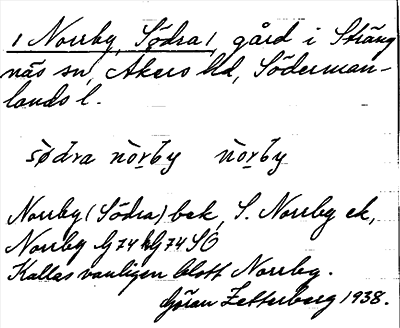 1 Norrby, Södra 1, gård i Sträng
näs sn, Åkers hd, Söderman-
lands l.
södra nòrby nòrby
Norrby (Södra) bek, S. Norrby ek,
Norrby G74 G74 SÖ
Kallas vanligen blott Norrby.
Göran Zetterberg 1938.